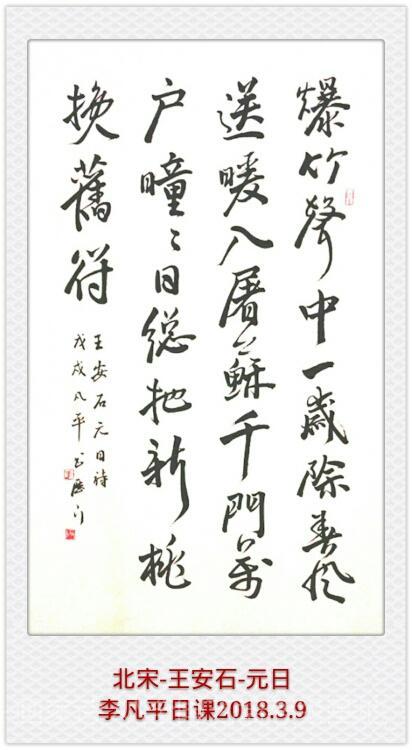 爆竹聲中一歲除春風
送暖入屠蘇千門萬
户曈々日總把新桃
換舊符
王安石元日詩
戊戌凡平书
北宋-王安石-元日
李凡平日课2018.3.9